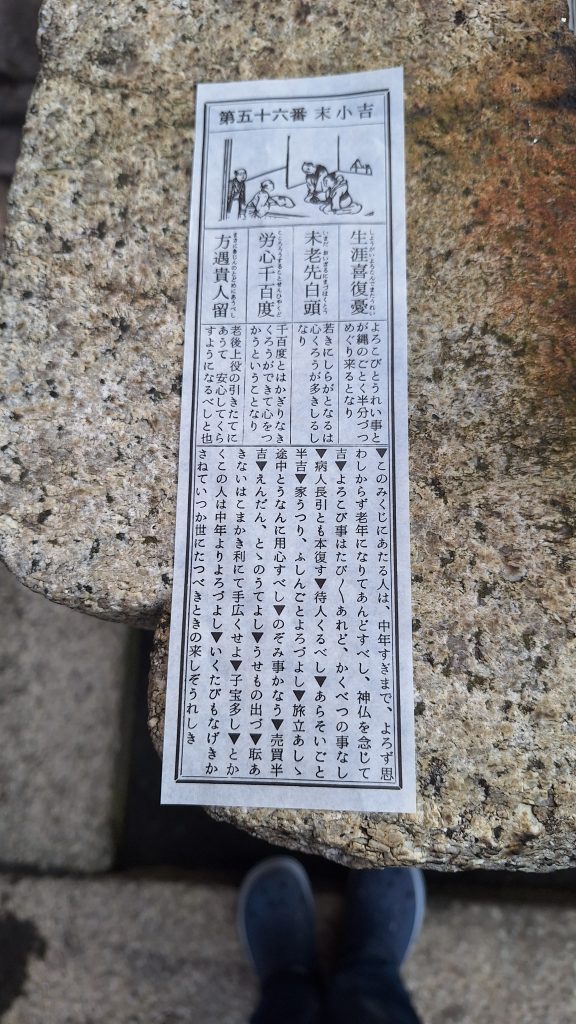 第五十六番 末小吉
生涯喜復憂
未老先白頭
労心千百度
方遇貴人留
よろこびとうれい事と
が縄のごとく半分づつ
めぐり来るとなり
若きにしらがとなるは
心くろうが多きしるし
なり
千百度とはかぎりなき
くろうができて心をつ
かうということなり
老後上役の引きたてに
あうて 安心してくら
すようになるべしと也
▼このみくじにあたる人は、中年すぎまで、よろず思
わしからず老年になりてあんどすべし、神仏を念じて
吉▼よろこび事はたび〱あれど、かくべつの事なし
▼病人長引とも本復す▼待人くるべし▼あらそいごと
半吉▼家うつり、ふしんごとよろづよし▼旅立あしゝ
途中とうなんに用心すべし▼のぞみ事かなう▼売買半
吉▼えんだん、とゝのうてよし▼うせもの出づ▼耺あ
きないはこまかき利にて手広くせよ▼子宝多し▼とか
くこの人は中年よりよろづよし▼いくたびもなげきか
さねていつか世にたつべきときの来しぞうれしき